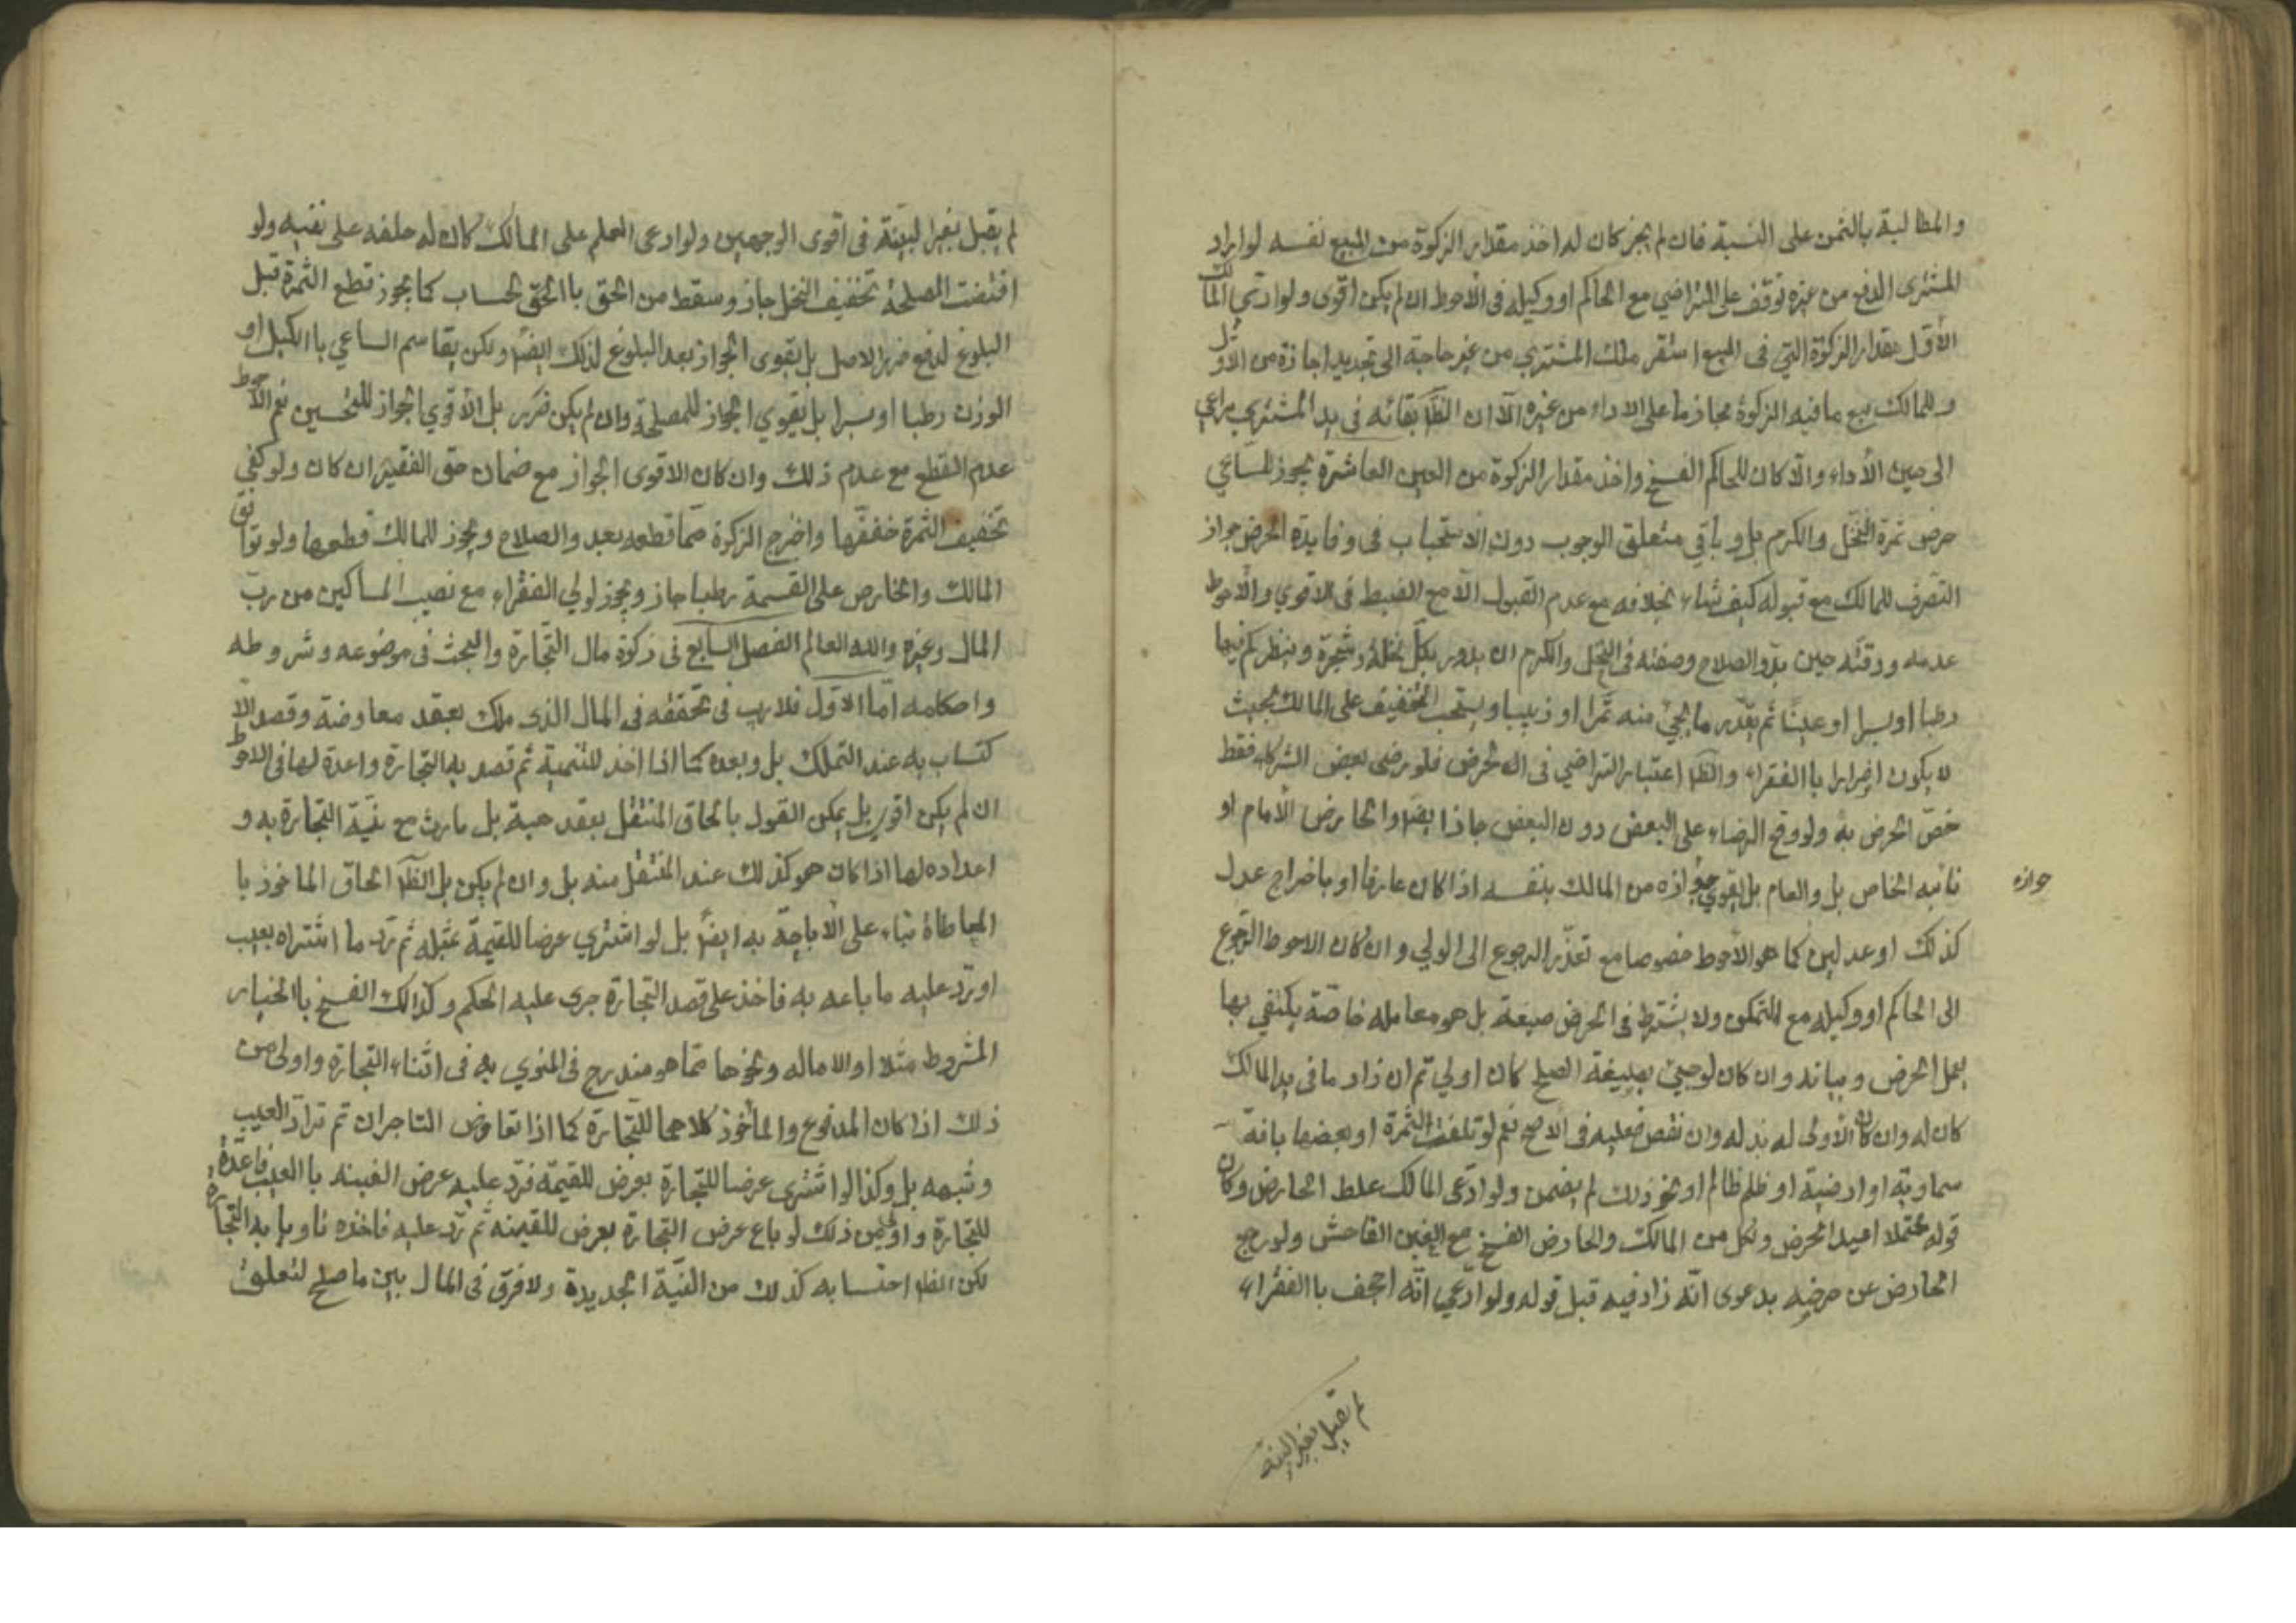 والمطالبة بالثمن على النسبة فان لم يجز كان له اخذ مقدار الزكوة من المبيع نفسه لو اراد
المشترى الدفع من غيره توقف على التراضي مع الحاكم او وكيله فى الاحوط ان لم يكن اقوى ولو ادى المالك
الاول مقدار الزكوة التي فى المبيع استقر ملك المشتري من غير حاجة الى تجديد اجازة من الاول
وللمالك بيع ما فيه الزكوة مجازما على الاداء من غيره الا ان الظ بقائه فى يد المشتري يراعي
الى حين الأداء والا كان للحاكم الفسخ واخذ مقدار الزكوة من العين العاشرة يجوز للساعي
خرص ثمرة النخل والكرم بل وباقي متعلق الوجوب دون الاستحباب فى وفايدة الخرص جواز
التصرف للمالك مع قبوله كيف شاء بخلافه مع عدم القبول الا مع الضبط فى الاقوي والاحوط
عدمه ووقته حين بدو الصلاح وصفته فى النخل والكرم ان يدور بكل نخلة وشجرة وينظر كم فيها
رطبا او بسرا او عنبا ثم يقدر ما يجئ منه تمرا او زبيبا ويستحب التخفيف على المالك بحيث
لا يكون اضرارا باالفقراء والظ اعتبار التراضي فى الخرص فلو رضى بعض الشركاء فقط
خص الخرص به ولو وقع الرضاء على البعض دون البعض جاز ايضا والخارص الأمام او
نائبه الخاص بل والعام بل القوي جوازه من المالك بنفسه اذا كان عارفا او باخراج عدل
جوازه
كذلك او عدلين كما هو الأحوط خصوصا مع تعذر الرجوع الى الولي وان كان الاحوط الرجوع
الى الحاكم او وكيله مع التمكن ولا يشترط فى الخرص صيغة بل هو معامله خاصة يكتفي بها
بعمل الخرص وبيانه وان كان لو جئ بصيغة الصلح كان اولي ثم ان زاد ما فى يد المالك
كان له وان كان الأولى له بذله وان نقص فعليه فى الأصح نعم لو تلفت الثمرة او بعضها بافة
سماوية او ارضية او ظلم ظالم او نحو ذلك لم يضمن ولو ادعى المالك غلط الخارص وكان
قوله محتملا اعيد الخرص ولكل من المالك والخارص الفسخ مع الغبن الفاحش ولو رجع
الخارص عن خرصه بدعوى انه زاد فيه قبل قوله ولو ادعي انه اجحف باالفقراء
لم يقبل بغير البينة
لم يقبل بغير البينة فى اقوى الوجهين ولو ادعى العلم على المالك كان له حلفه على نفيه ولو
اقتضت المصلحة تخفيف النخل جاز وسقط من الحق باالحق بحساب كما يجوز قطع الثمرة قبل
البلوغ لدفع ضرر الاصل بل يقوى الجواز بعد البلوغ لذلك ايضا ولكن يقاسم الساعي باالكيل او
الوزن رطبا او بسرا بل يقوي الجواز للمصلحة وان لم يكن ضرر بل الأقوي الجواز للتحسين نعم الأحوط
عدم القطع مع عدم ذلك وان كان الاقوى الجواز مع ضمان حق الفقير ان كان ولو كفى
تخفيف الثمرة خففها واخرج الزكوة مما قطعه بعد والصلاح ويجوز للمالك قطعها ولو توافق
المالك والخارص على القسمة رطبا جاز ويجوز لولي الفقراء مع نصيب المساكين من رب
المال وغيره والله العالم الفصل السابع فى زكوة مال التجارة والبحث فى موضوعه وشروطه
واحكامه اما الاول فلا ريب فى تحققه فى المال الذى ملك بعقد معاوضة وقصد الا
كتساب به عند التملك بل وبعده كما اذا اخذ للتنمية ثم قصد به التجارة واعدة لها فى الاحوط
ان لم يكن اقوى بل يمكن القول بالحاق المنتقل بعقد هبة بل بارث مع نية التجارة به و
اعداده لها اذا كان هو كذلك عند المنتقل منه بل وان لم يكن بل الظ الحاق الماخوذ با
المعاطاة بناء على الأباحة به ايضا بل لو اشتري عرضا للقيمة بمثله ثم رد ما اشتراه بعيب
او رد عليه ما باعه به فاخذ على قصد التجارة جرى عليه الحكم وكذالك الفسخ باالخيار
المشروط مثلا او الاماله ونحوها مما هو مندرج فى المنوي به فى اثناء التجارة واولى من
ذلك اذا كان المدفوع والمأخوذ كلاهما للتجارة كما اذا تعاوض التاجران ثم ترادا العيب
وشبهه بل وكذا لو اشترى عرضا للتجارة بعرض للقيمة فرد عليه عرض القينه باالعيب فاعده
للتجارة واولى من ذلك لو باع عرض التجارة بعرض للقينه ثم رد عليه فاخذه ناويا به التجارة
لكن الظ احتسابه كذلك من النية الجديدة ولا فرق فى المال بين ما صلح لتعلق